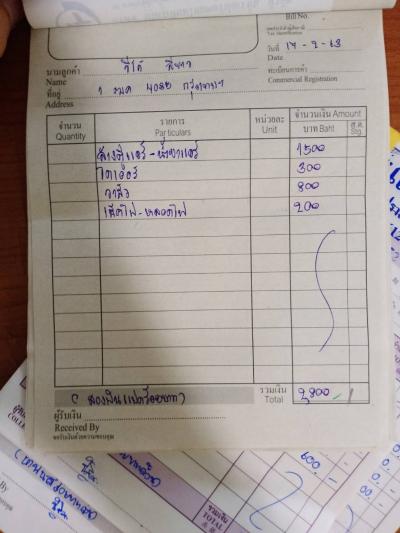 Bill No.
วันที่ 17-2-63
Date
ทะเบียนการค้า
Commercial Registration
นามลูกค้า วีโก้ สีขาว
Name
ที่อยู่ 1 ฒฒ 4082 กรุงเทพฯ
Address
จำนวน รายการ หน่วยละ จำนวนเงิน Amount
Quantity Particulars Unit บาท Baht ส.ต. Stg.
ล้างตู้แอร์-น้ำยาแอร์ 1500
ไดเออร์ 300
วาล์ว 800
เช็คไฟ-หลอดไฟ 200
(สองพันแปดร้อยบาท) รวมเงิน Total 2,800
ผู้รับเงิน
Received By
ขอรับเงินด้วยความขอบคุณ
600
รวมเงิน